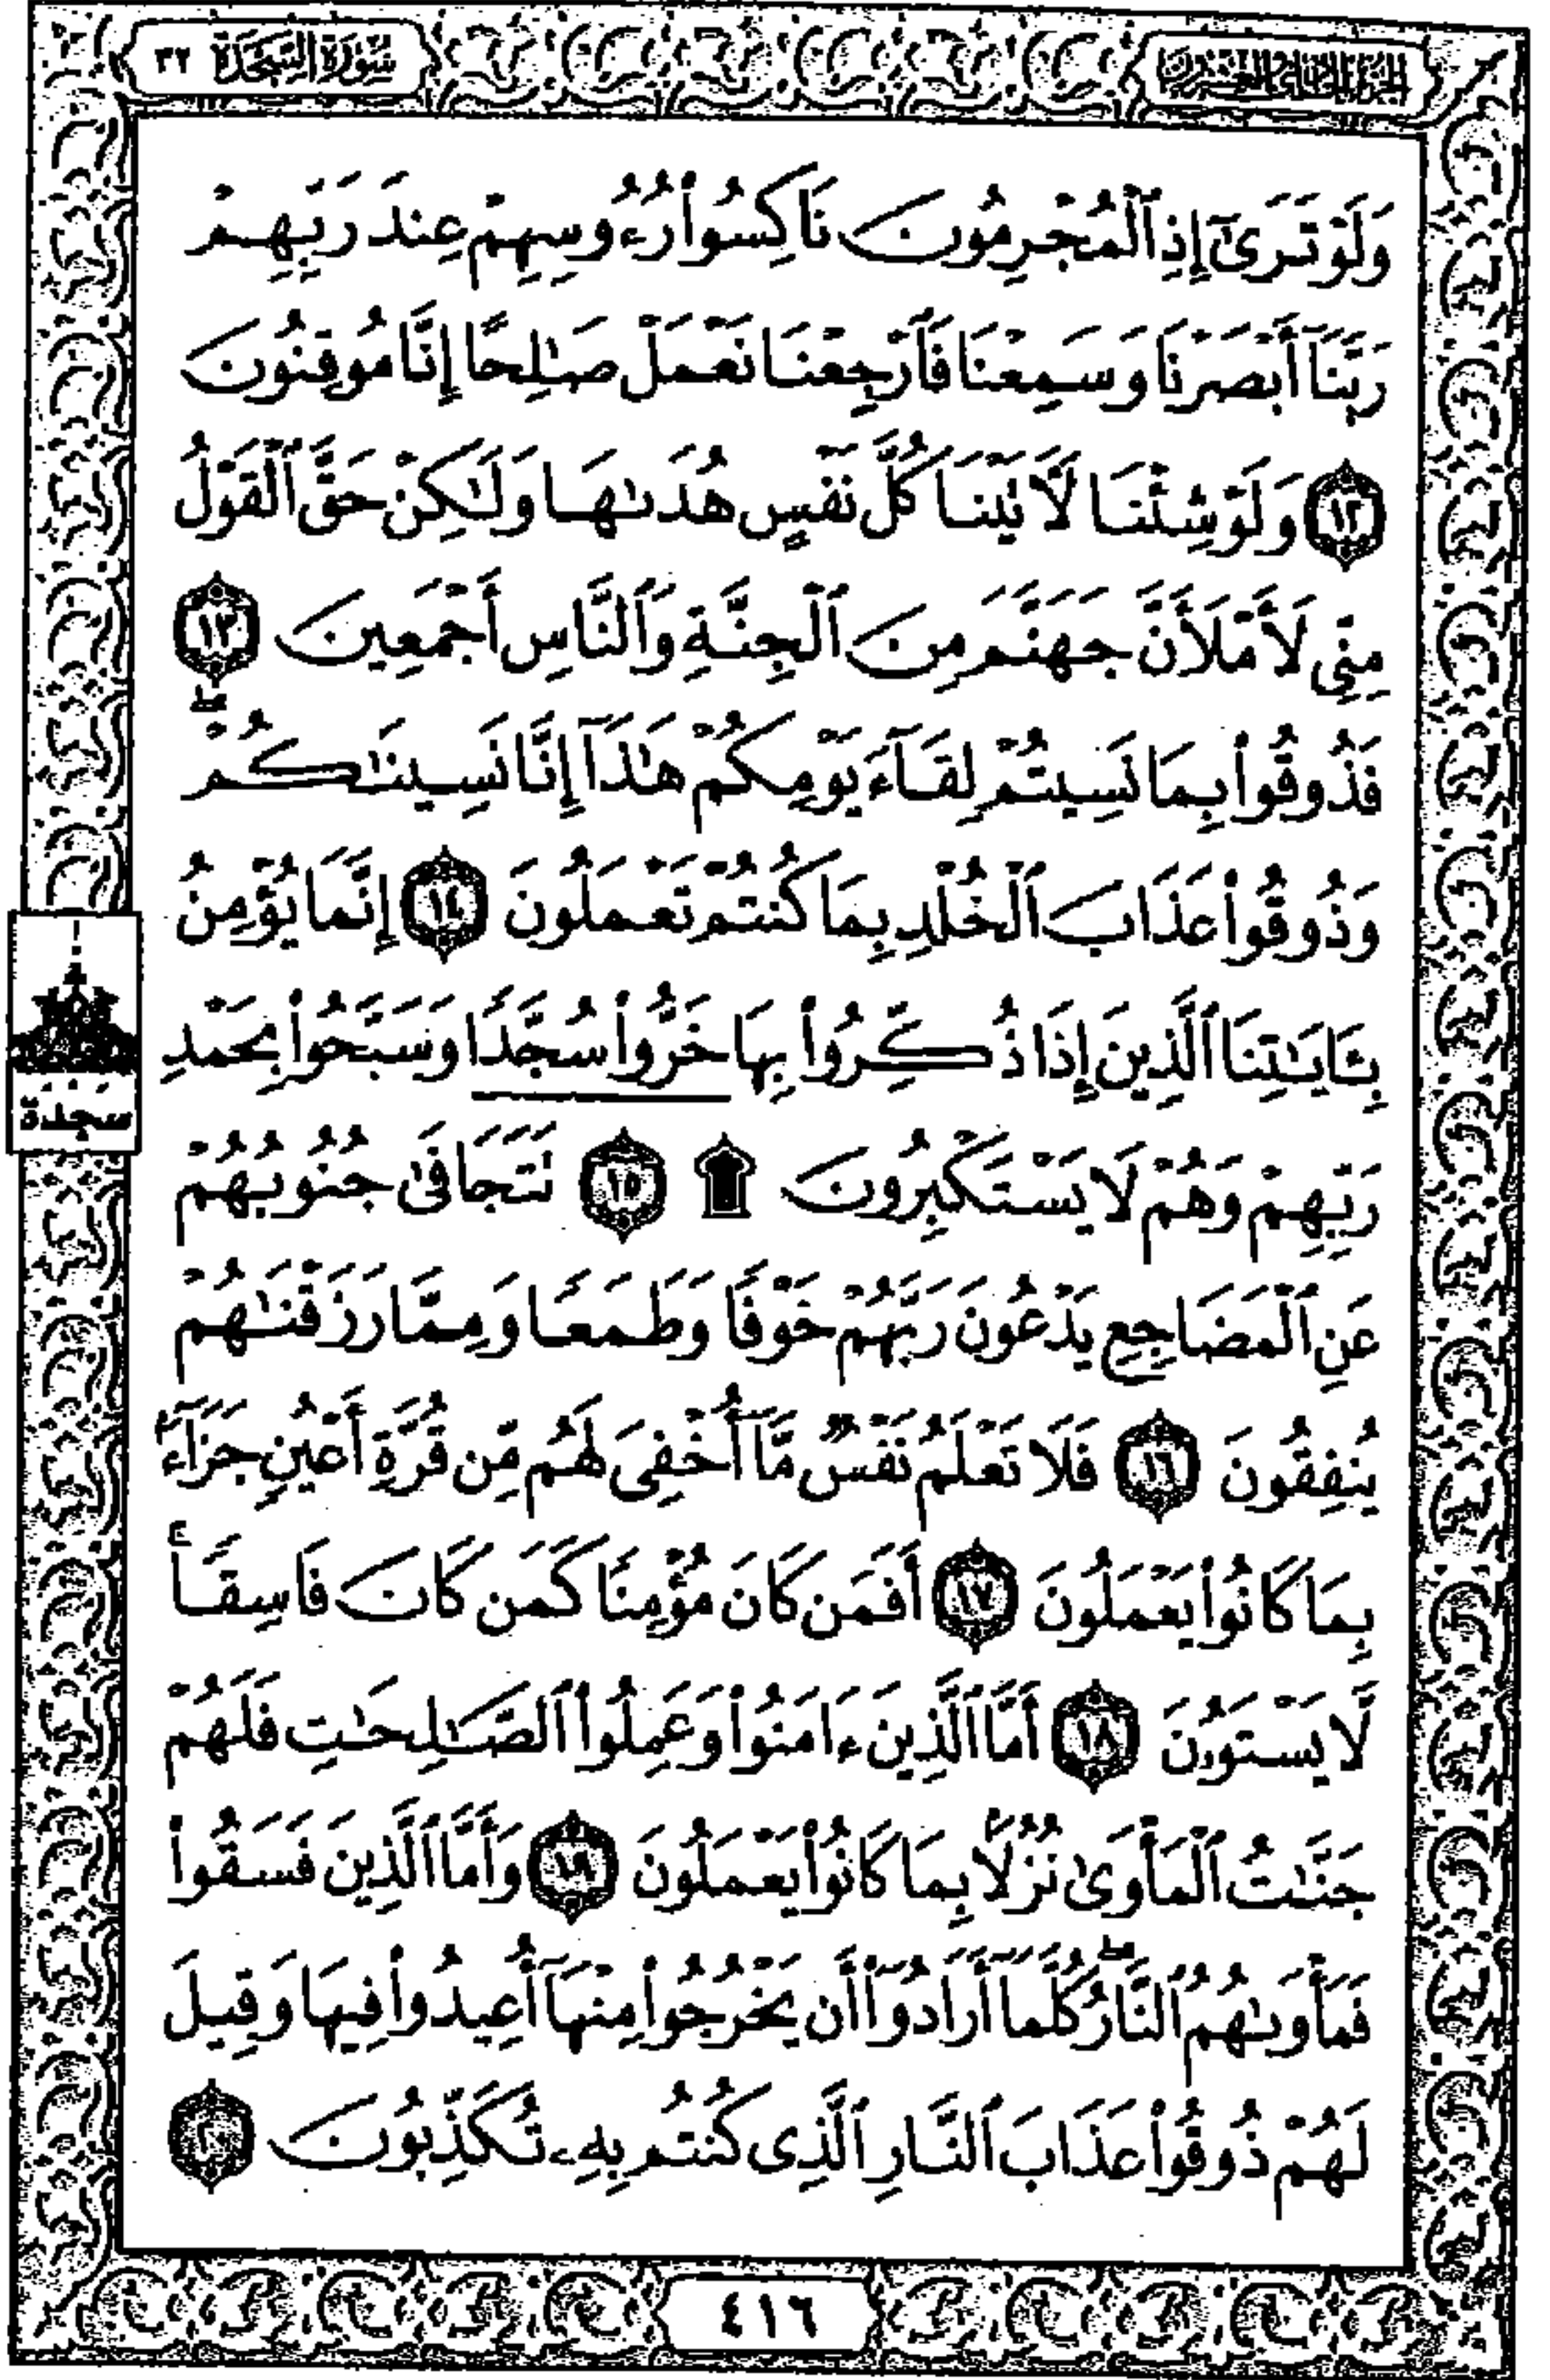 الجزء الحادي والعشرون
سُورَةُ السَّجْدَةِ ٣٢
وَلَوْ تَرَىٰٓ إِذِ ٱلْمُجْرِمُونَ نَاكِسُوا۟ رُءُوسِهِمْ عِندَ رَبِّهِمْ
رَبَّنَآ أَبْصَرْنَا وَسَمِعْنَا فَٱرْجِعْنَا نَعْمَلْ صَـٰلِحًا إِنَّا مُوقِنُونَ
١٢ وَلَوْ شِئْنَا لَـَٔاتَيْنَا كُلَّ نَفْسٍ هُدَىٰهَا وَلَـٰكِنْ حَقَّ ٱلْقَوْلُ
مِنِّى لَأَمْلَأَنَّ جَهَنَّمَ مِنَ ٱلْجِنَّةِ وَٱلنَّاسِ أَجْمَعِينَ ١٣
فَذُوقُوا۟ بِمَا نَسِيتُمْ لِقَآءَ يَوْمِكُمْ هَـٰذَآ إِنَّا نَسِينَـٰكُمْ ۖ
وَذُوقُوا۟ عَذَابَ ٱلْخُلْدِ بِمَا كُنتُمْ تَعْمَلُونَ ١٤ إِنَّمَا يُؤْمِنُ
بِـَٔايَـٰتِنَا ٱلَّذِينَ إِذَا ذُكِّرُوا۟ بِهَا خَرُّوا۟ سُجَّدًا وَسَبَّحُوا۟ بِحَمْدِ
رَبِّهِمْ وَهُمْ لَا يَسْتَكْبِرُونَ ۩ ١٥ تَتَجَافَىٰ جُنُوبُهُمْ
عَنِ ٱلْمَضَاجِعِ يَدْعُونَ رَبَّهُمْ خَوْفًا وَطَمَعًا وَمِمَّا رَزَقْنَـٰهُمْ
يُنفِقُونَ ١٦ فَلَا تَعْلَمُ نَفْسٌ مَّآ أُخْفِىَ لَهُم مِّن قُرَّةِ أَعْيُنٍ جَزَآءًۢ
بِمَا كَانُوا۟ يَعْمَلُونَ ١٧ أَفَمَن كَانَ مُؤْمِنًا كَمَن كَانَ فَاسِقًا ۚ
لَّا يَسْتَوُۥنَ ١٨ أَمَّا ٱلَّذِينَ ءَامَنُوا۟ وَعَمِلُوا۟ ٱلصَّـٰلِحَـٰتِ فَلَهُمْ
جَنَّـٰتُ ٱلْمَأْوَىٰ نُزُلًۢا بِمَا كَانُوا۟ يَعْمَلُونَ ١٩ وَأَمَّا ٱلَّذِينَ فَسَقُوا۟
فَمَأْوَىٰهُمُ ٱلنَّارُ ۖ كُلَّمَآ أَرَادُوٓا۟ أَن يَخْرُجُوا۟ مِنْهَآ أُعِيدُوا۟ فِيهَا وَقِيلَ
لَهُمْ ذُوقُوا۟ عَذَابَ ٱلنَّارِ ٱلَّذِى كُنتُم بِهِۦ تُكَذِّبُونَ ٢٠
سَجْدَة
٤١٦